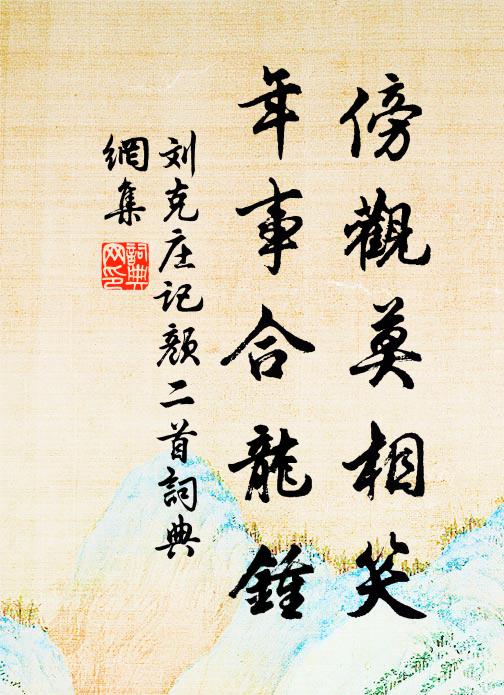 傍觀莫相笑
年事合龍鍾
刘克庄记颜二首詞典
網集
詞典
网印